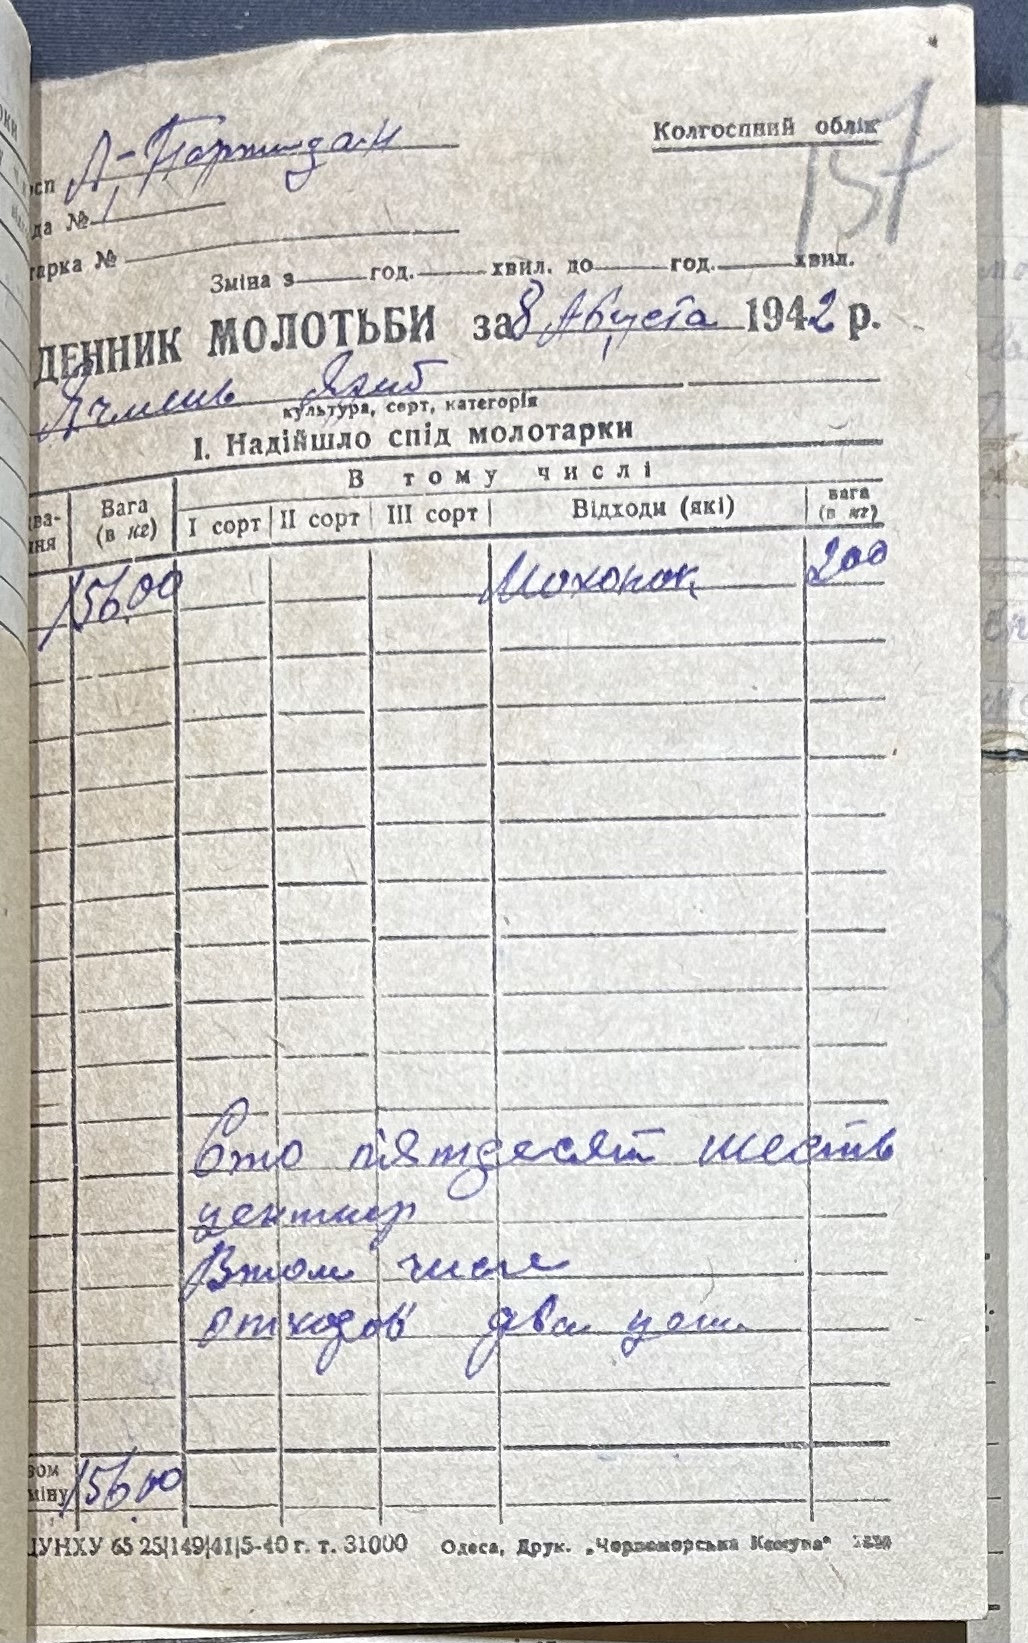 Колгоспний облік
157
осп А-Партизан
да № 1
тарка №
Зміна з год. хвил. до год. хвил.
ДЕННИК МОЛОТЬБИ за 8 Августа 1942 р.
Ячмень
культура, сорт, категорія
І. Надійшло спід молотарки
В тому числі
ва-
ння
Вага
(в кг)
І сорт ІІ сорт ІІІ сорт Відходи (які)
вага
(в кг)
15600 200
Сто пятдесят шесть
центнер
Втом числе
отходов два цент
зом
міну 15600
ЦУНХУ 65 25|149|41|5-40 г. т. 31000 Одеса, Друк. „Чорноморська Комуна“